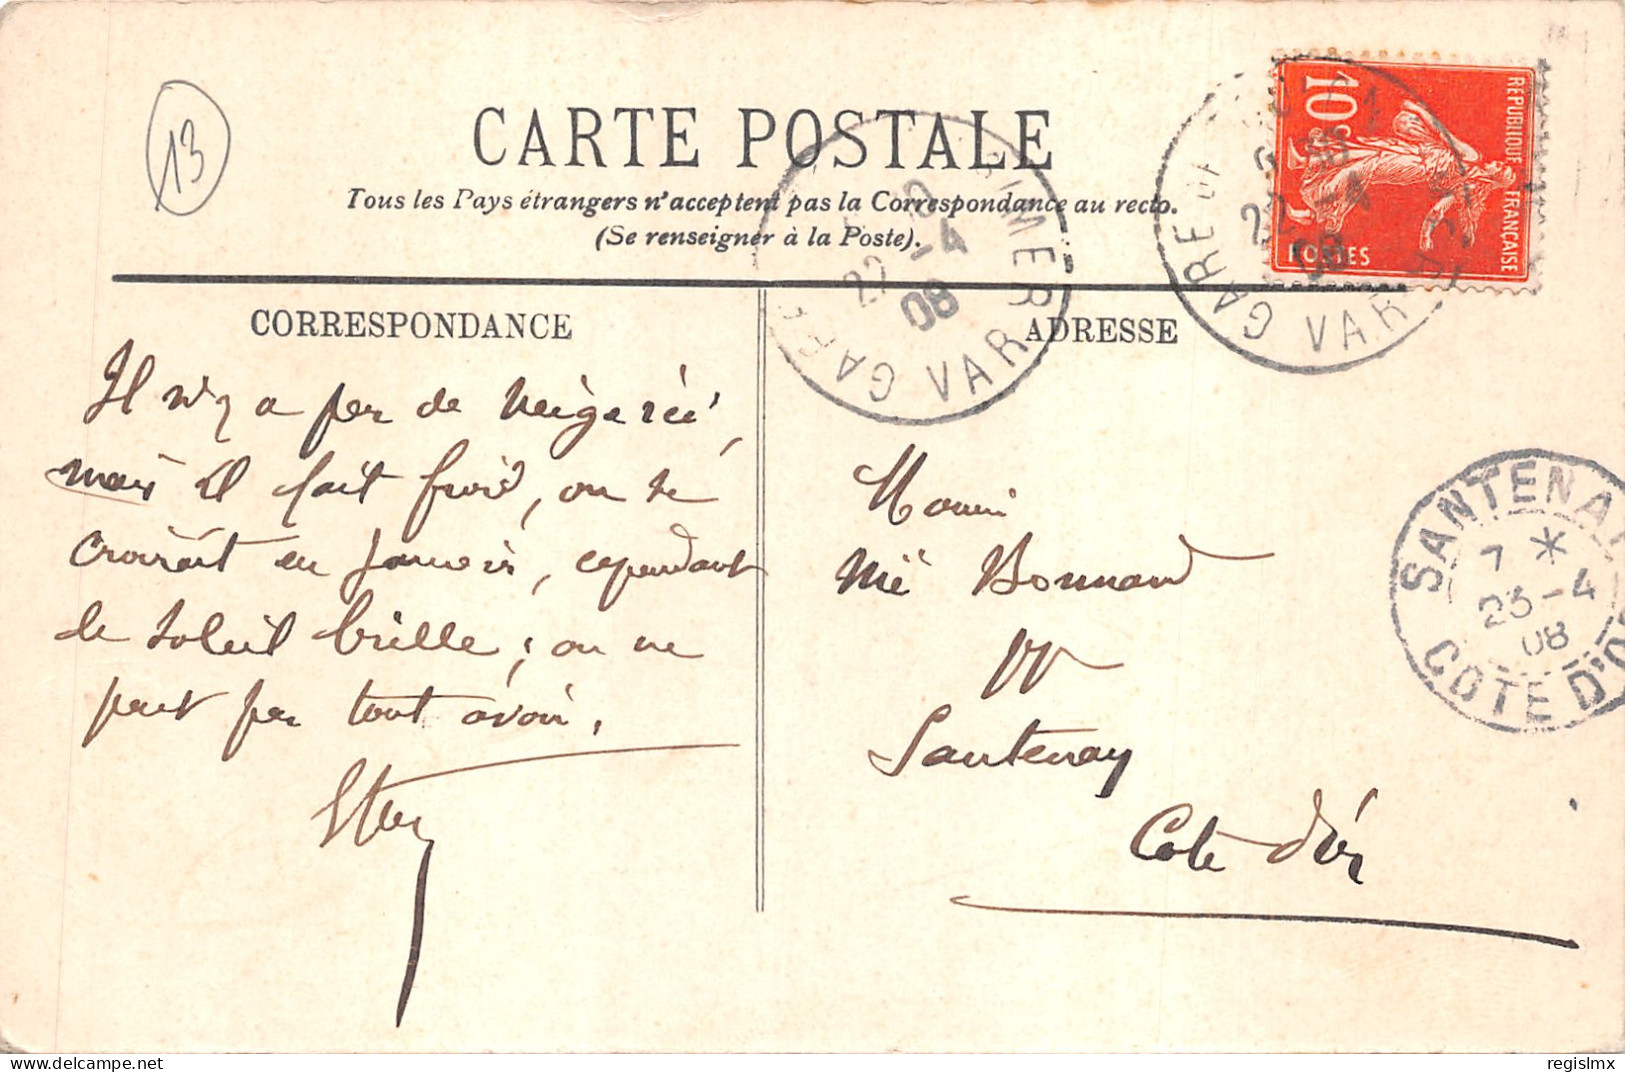 13
CARTE POSTALE
Tous les Pays étrangers n'acceptent pas la Correspondance au recto.
(Se renseigner à la Poste).
10c
REPUBLIQUE FRANÇAISE
POSTES
GARE
22 -4
08
VAR
GARE
22 -4
08
VAR
CORRESPONDANCE
ADRESSE
Il n'y a pas de neige ici,
mais il fait froid, on se
croirait en Janvier, cependant
le soleil brille ; on ne
peut pas tout avoir.
Bonnard
Santenay
Cote d'Or
SANTENAY
7 *
23 -4
08
COTE D'OR
delcampe.net
regislmx